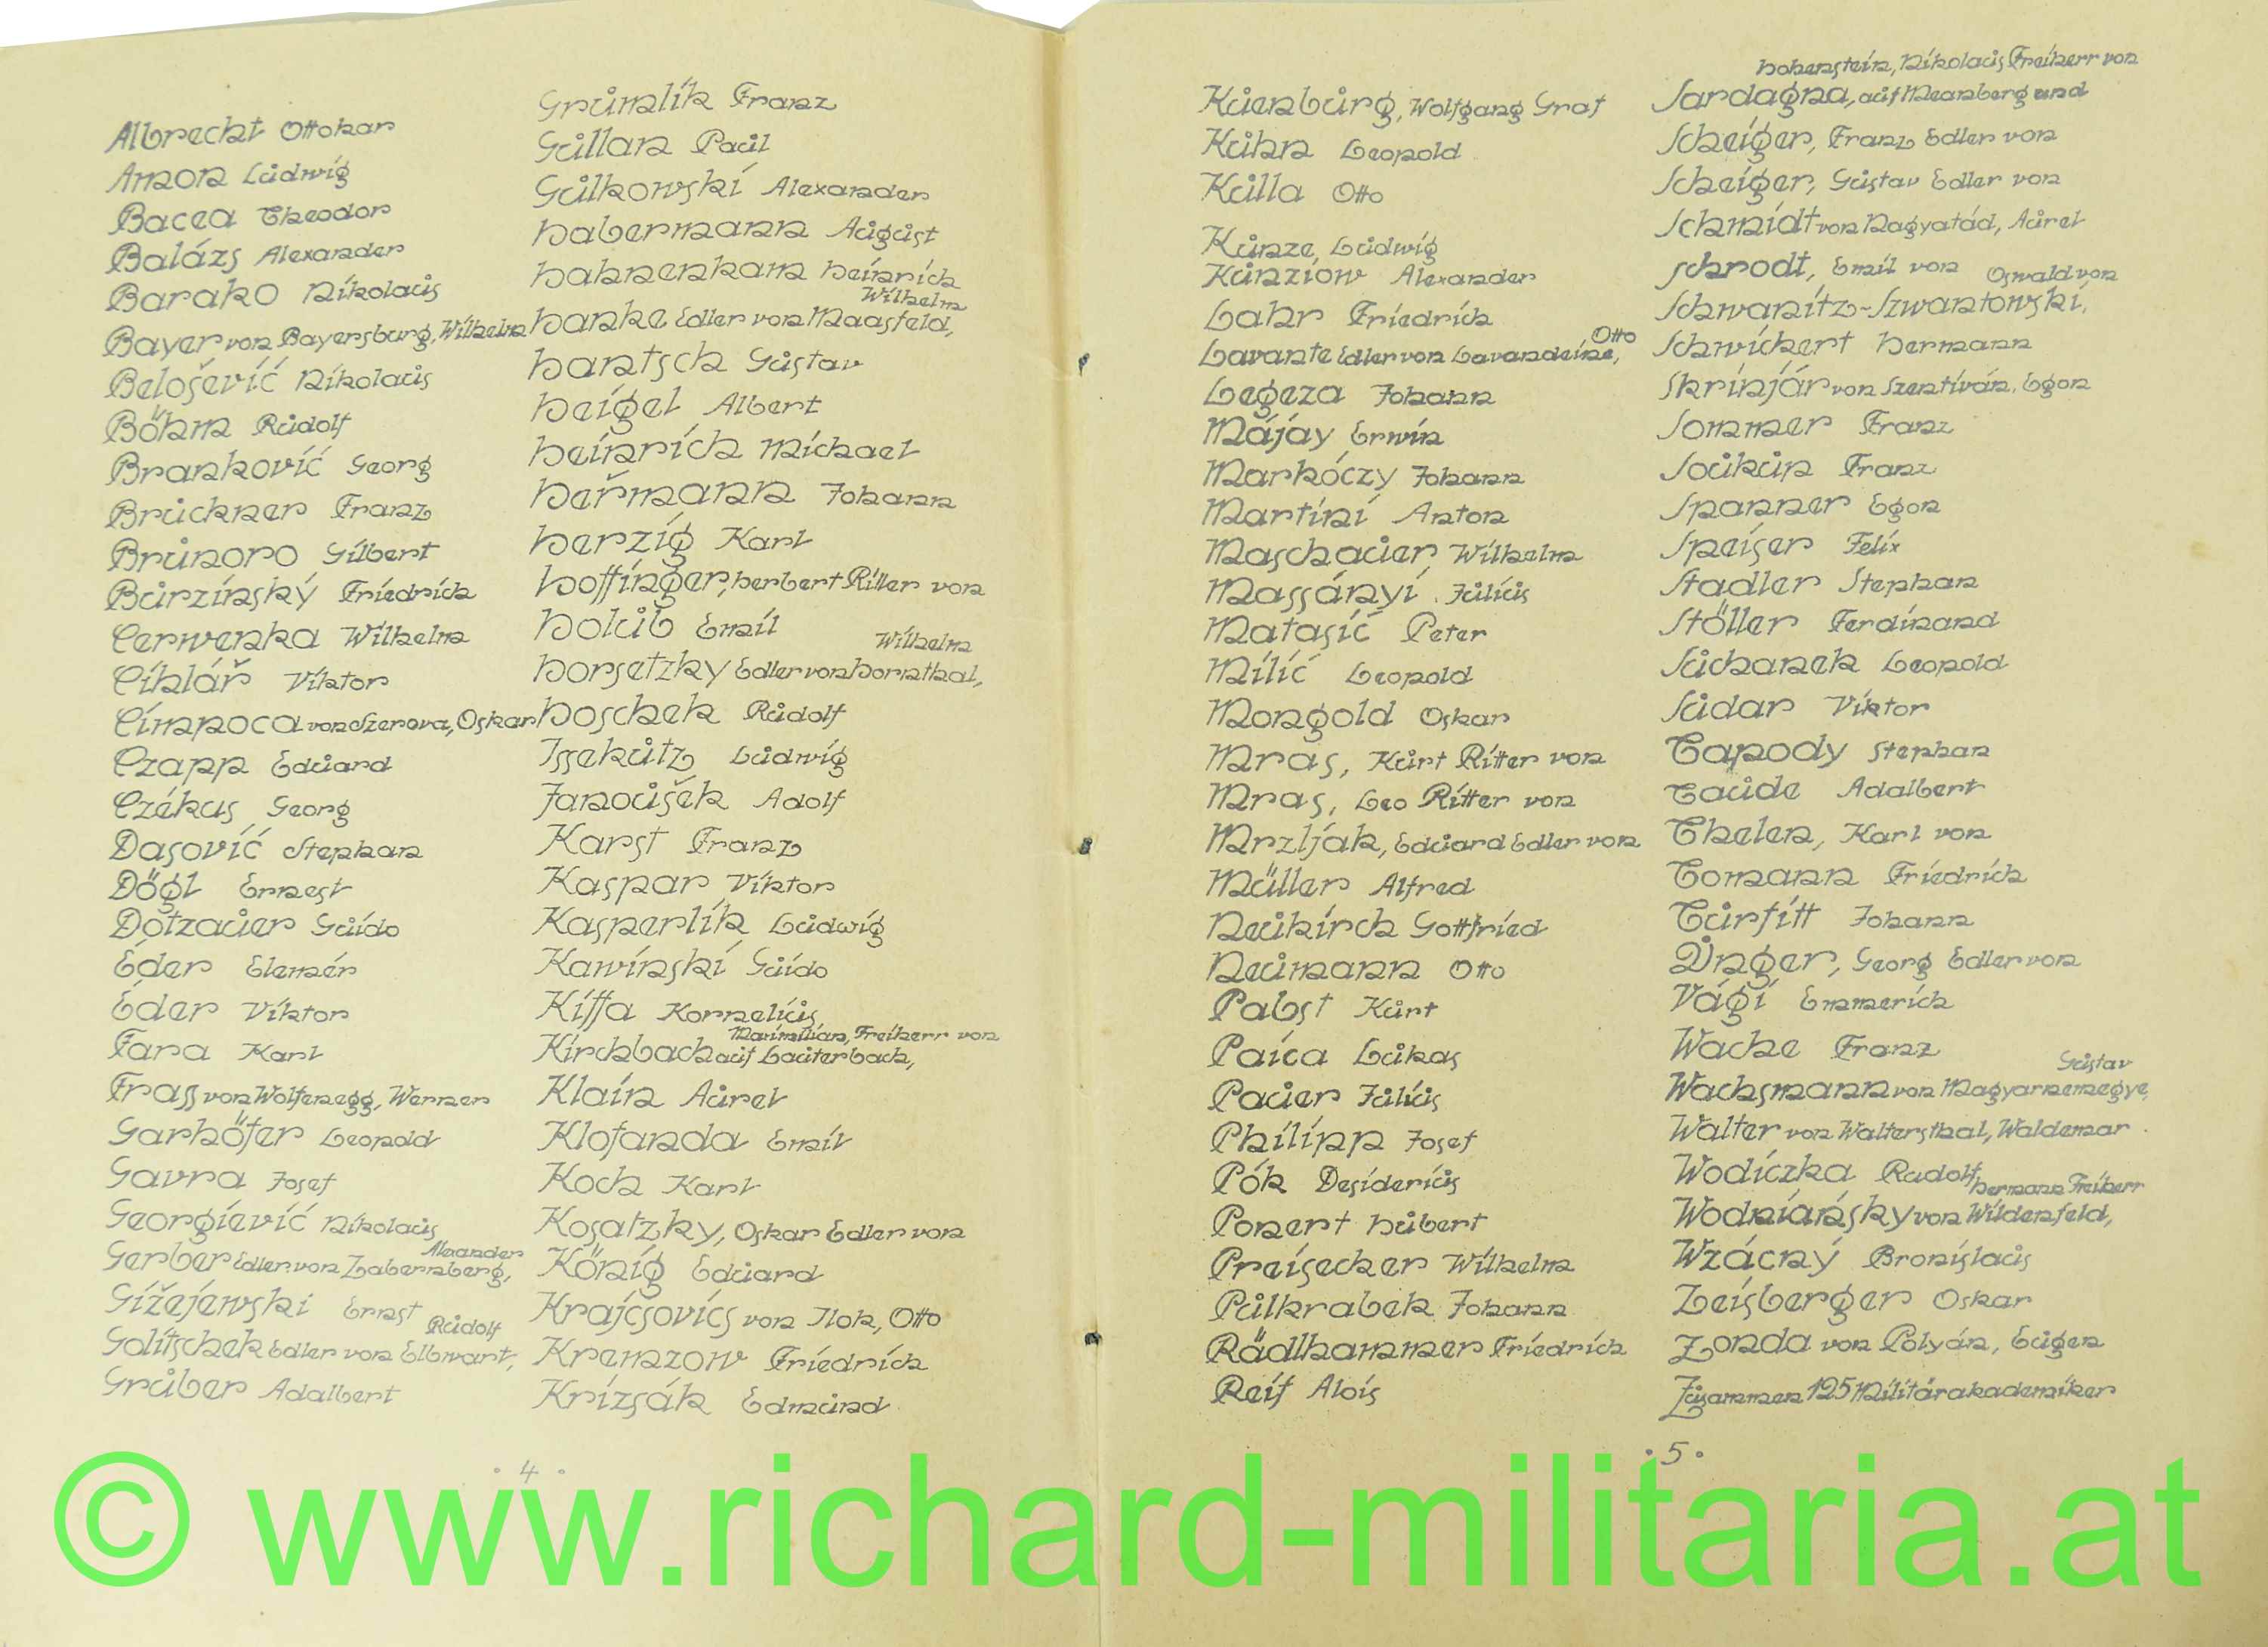 Albrecht Ottokar
Amon Ludwig
Bacea Theodor
Balázs Alexander
Barako Nikolaus
Bayer von Bayersburg, Wilhelm
Belošević Nikolaus
Böhm Rudolf
Branković Georg
Bruckner Franz
Brunoro Gilbert
Burzínský Friedrich
Cerwenka Wilhelm
Ciklář Viktor
Cimpoca von Szerova, Oskar
Czapp Eduard
Czékus Georg
Dasović Stephan
Dögl Ernest
Dotzauer Guido
Éder Elemér
Éder Viktor
Fara Karl
Frass von Wolfenegg, Werner
Garhöfer Leopold
Gavra Josef
Georgiević Nikolaus
Alexander
Gerber Edler von Zabernberg,
Gižejewski Ernst
Rudolf
Golitschek Edler von Elbwart,
Gruber Adalbert
Grumlik Franz
Gullan Paul
Gulkowski Alexander
Habermann August
Hahnenkam Heinrich
Wilhelm
Hanke Edler von Maasfeld,
Hantsch Gustav
Heigel Albert
Heinrich Michael
Heřmann Johann
Herzig Karl
Hoffinger, Herbert Ritter von
Holub Emil
Wilhelm
Horsetzky Edler von Hornthal,
Hoschek Rudolf
Issekutz Ludwig
Janoušek Adolf
Karst Franz
Kaspar Viktor
Kasperlik Ludwig
Kawinski Guido
Kiffa Kornelius
Maximilian, Freiherr von
Kirchbach auf Lauterbach,
Klain Aurel
Klofanda Emil
Koch Karl
Kosatzky, Oskar Edler von
König Eduard
Krajcsovics von Ilok, Otto
Kremzow Friedrich
Krizsák Edmund
· 4 ·
Kuenburg, Wolfgang Graf
Kuhn Leopold
Kulla Otto
Kunze, Ludwig
Kunziow Alexander
Lahr Friedrich
Otto
Lavante Edler von Lavandeine,
Legeza Johann
Májay Erwin
Markóczy Johann
Martini Anton
Maschauer, Wilhelm
Massányi Julius
Matasić Peter
Milić Leopold
Mongold Oskar
Mras, Kurt Ritter von
Mras, Leo Ritter von
Mrzljak, Eduard Edler von
Müller Alfred
Neukirch Gottfried
Neumann Otto
Pabst Kurt
Paica Lukas
Pauer Julius
Philipp Josef
Pók Desiderius
Ponert Hubert
Preisecker Wilhelm
Pulkrabek Johann
Rädlhammer Friedrich
Reif Alois
Hohenstein, Nikolaus Freiherr von
Sardagna, auf Meanberg und
Scheiger, Franz Edler von
Scheiger, Gustav Edler von
Schmidt von Nagyatád, Aurel
Schrodt, Emil von
Oswald von
Schwanitz-Szwantowski,
Schwickert Hermann
Skrinjár von Szentiván, Egon
Sommer Franz
Soukup Franz
Spanner Egon
Speiser Felix
Stadler Stephan
Stöller Ferdinand
Suchanek Leopold
Sudar Viktor
Tapody Stephan
Taude Adalbert
Thelen, Karl von
Tomann Friedrich
Turfitt Johann
Unger, Georg Edler von
Vági Emmerich
Wache Franz
Gustav
Wachsmann von Magyarnemegye,
Walter von Waltersthal, Waldemar
Wodiczka Rudolf
Hermann Freiherr
Wodniánsky von Wildenfeld,
Wzácný Bronislaus
Zeisberger Oskar
Zonda von Polyán, Eugen
Zusammen 125 Militärakademiker
· 5 ·
© www.richard-militaria.at